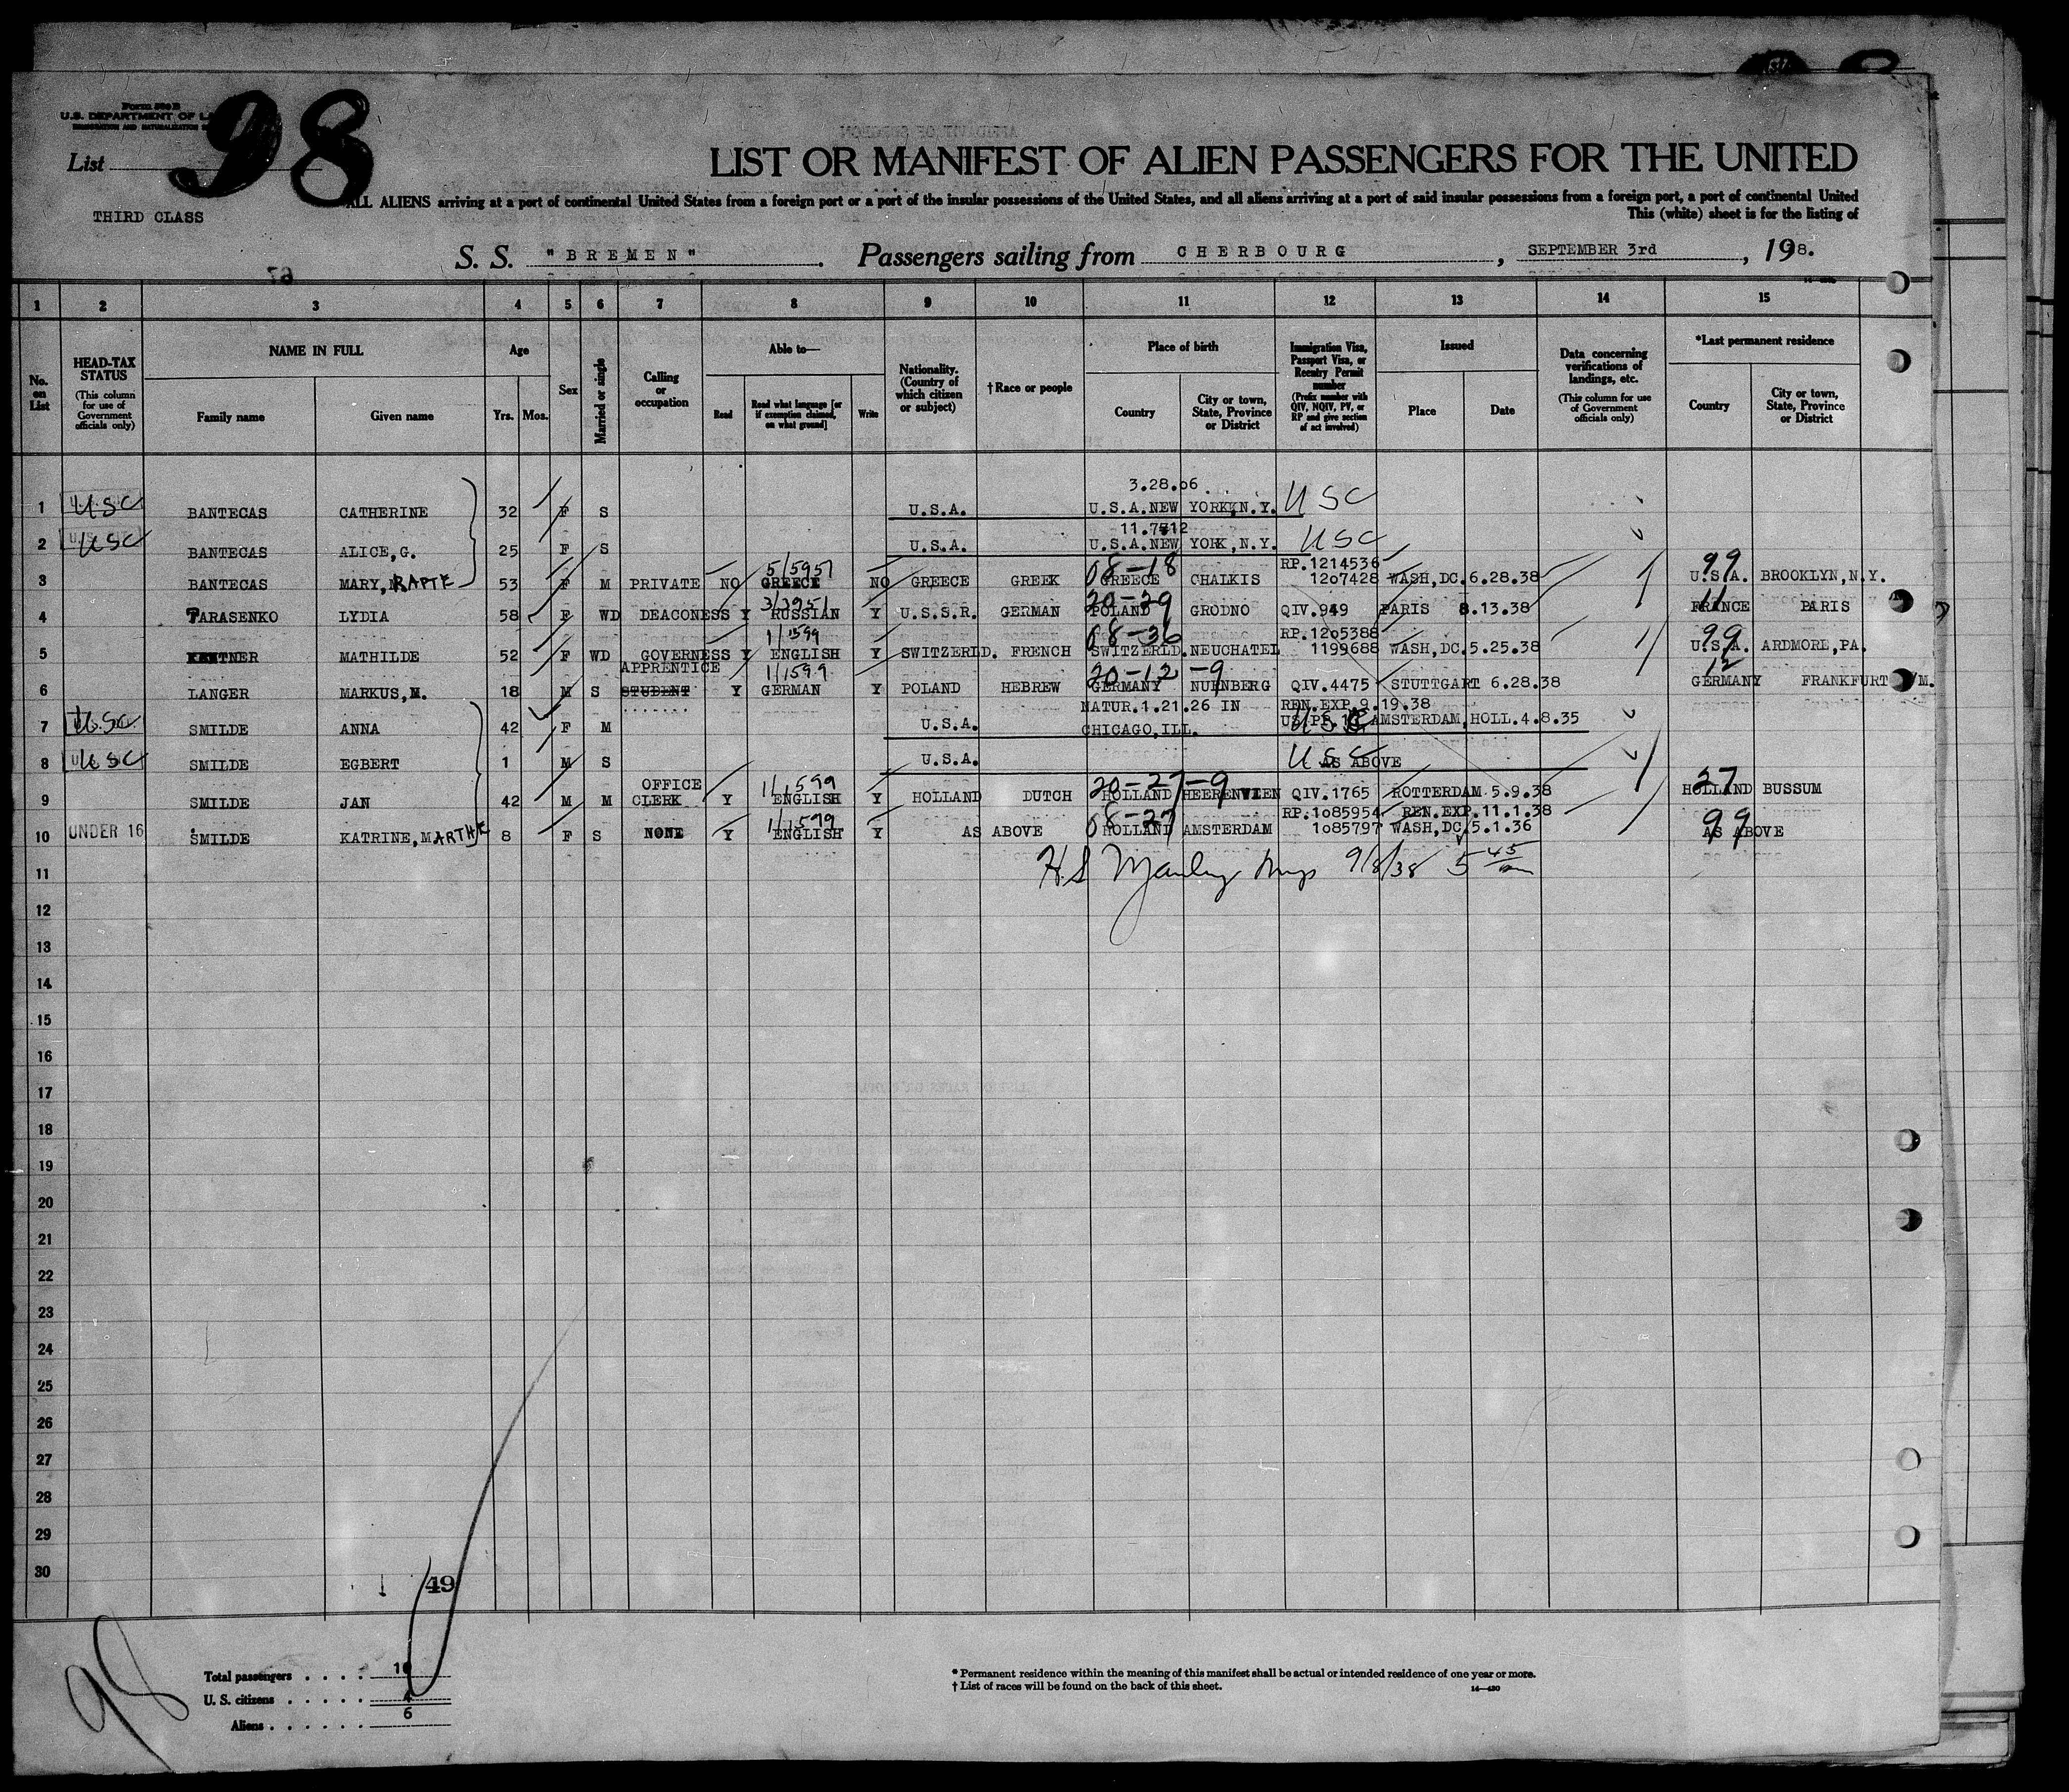 Form 500 B
U.S. DEPARTMENT OF
IMMIGRATION AND NATURALIZATION
98
List
THIRD CLASS
LIST OR MANIFEST OF ALIEN PASSENGERS FOR THE UNITED
ALL ALIENS arriving at a port of continental United States from a foreign port or a port of the insular possessions of the United States, and all aliens arriving at a port of said insular possessions from a foreign port, a port of continental United
This (white) sheet is for the listing of
S. S. "BREMEN". Passengers sailing from CHERBOURG, SEPTEMBER 3rd, 1938.
1 2 3 4 5 6 7 8 9 10 11 12 13 14 15
No. on List
HEAD-TAX STATUS (This column for use of Government officials only)
NAME IN FULL
Family name Given name
Age
Yrs. Mos.
Sex
Married or single
Calling or occupation
Able to—
Read Read what language [or if exemption claimed, on what ground] Write
Nationality. (Country of which citizen or subject)
†Race or people
Place of birth
Country City or town, State, Province or District
Immigration Visa, Passport Visa, or Reentry Permit number (Prefix number with QIV, NQIV, PV, or RP and give section of act involved)
Issued
Place Date
Data concerning verifications of landings, etc. (This column for use of Government officials only)
*Last permanent residence
Country City or town, State, Province or District
3.28.06
1 USC BANTECAS CATHERINE 32 F S U.S.A. U.S.A. NEW YORK, N.Y. USC
11.7.12
2 USC BANTECAS ALICE, G. 25 F S U.S.A. U.S.A. NEW YORK, N.Y. USC
5/5951 08-18 RP.1214536 99
3 BANTECAS MARY, 53 F M PRIVATE NO GREECE NO GREECE GREEK GREECE CHALKIS 1207428 WASH, DC. 6.28.38 U.S.A. BROOKLYN, N.Y.
3/3951 20-29 11
4 TARASENKO LYDIA 58 F WD DEACONESS Y RUSSIAN Y U.S.S.R. GERMAN POLAND GRODNO QIV.949 PARIS 8.13.38 FRANCE PARIS
1/1599 08-36 RP.1205388 99
5 MATHILDE 52 F WD GOVERNESS Y ENGLISH Y SWITZERLD. FRENCH SWITZERLD. NEUCHATEL 1199688 WASH, DC. 5.25.38 U.S.A. ARDMORE, PA.
APPRENTICE 1/1599 20-12-9 12
6 LANGER MARKUS, M. 18 M S STUDENT Y GERMAN Y POLAND HEBREW GERMANY NURNBERG QIV.4475 STUTTGART 6.28.38 GERMANY FRANKFURT /M.
NATUR.1.21.26 IN REN.EXP.9.19.38
7 USC SMILDE ANNA 42 F M U.S.A. CHICAGO, ILL. AMSTERDAM, HOLL. 4.8.35
8 USC SMILDE EGBERT 1 M S U.S.A. USC AS ABOVE
OFFICE 1/1599 20-27-9 27
9 SMILDE JAN 42 M M CLERK Y ENGLISH Y HOLLAND DUTCH HOLLAND HEERENVEEN QIV.1765 ROTTERDAM 5.9.38 HOLLAND BUSSUM
1/1599 08-27 RP.1085954 REN.EXP.11.1.38 99
10 UNDER 16 SMILDE KATRINE, MARTHE 8 F S NONE Y ENGLISH Y AS ABOVE HOLLAND AMSTERDAM 1085797 WASH, DC. 5.1.36 AS ABOVE
11 H.S Manley 9/8/38 5 45
12
13
14
15
16
17
18
19
20
21
22
23
24
25
26
27
28
29
30
49
98
Total passengers . . . . 10
U. S. citizens . . . . . 4
Aliens . . . . . . 6
* Permanent residence within the meaning of this manifest shall be actual or intended residence of one year or more.
† List of races will be found on the back of this sheet.
14—430